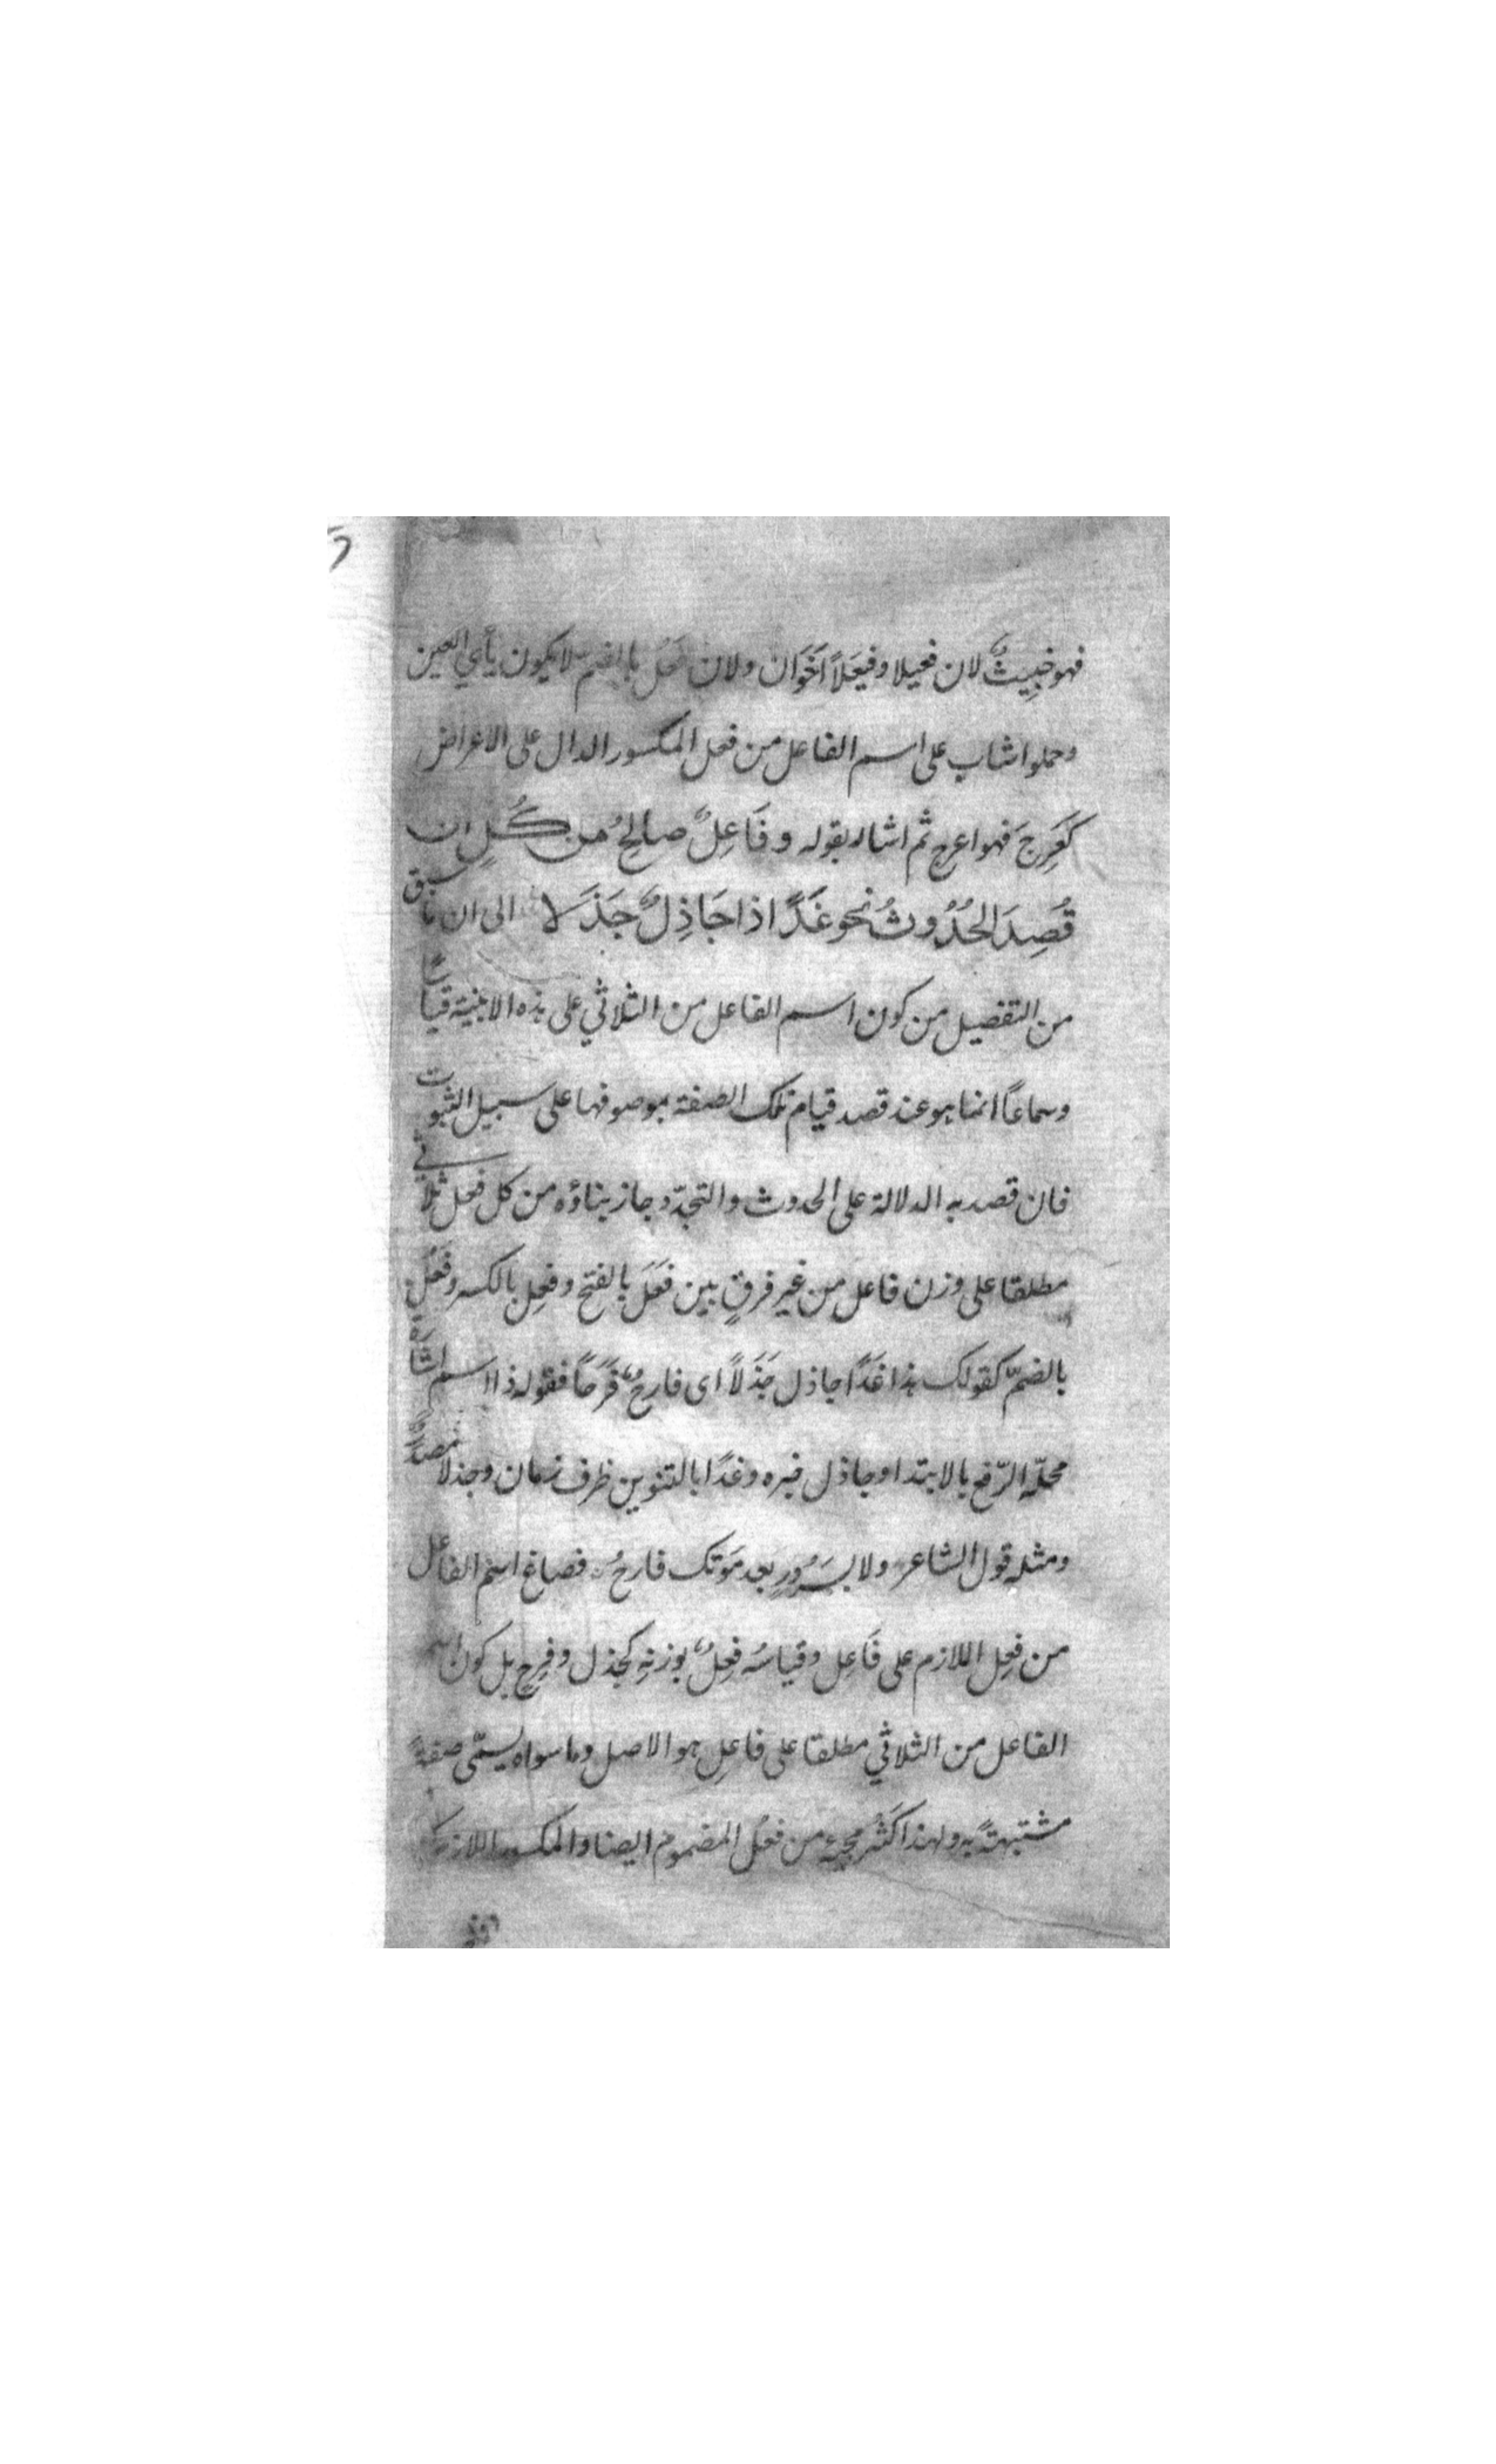 فهو خَبِيثٌ لان فعيلا وفَيعَلاً اَخَوَان ولان فَعُل بالضم لا يكون يأي العين
وحملوا شاب على اسم الفاعل من فعل المكسور الدال على الاعراض
كَعَرِجَ فهو اعرج ثم اشار بقوله وفَاعِلٌ صالِحٌ من كُلٍ ان
قُصِدَ الحُدُوث نحو غَدًا ذا جَاذِلٌ جَذَلا الى ان ما سبق
من التفصيل من كون اسم الفاعل من الثلاثي على هذه الابنية قياسًا
وسماعًا انما هو عند قصد قيام تلك الصفة بموصوفها على سبيل الثبوت
فان قصد به الدلالة على الحدوث والتجدّد جاز بناؤه من كل فعل ثلاثي
مطلقا على وزن فاعل من غير فرقٍ بين فَعَلَ بالفتح وفعِل بالكسر وفَعُل
بالضمّ كقولك هذا غَدًا جاذل جَذَلاً اى فارحٌ فَرَحًا فقوله ذا اسم اشارة
محلّه الرّفع بالابتدا وجاذل خبره وغدًا بالتنوين ظرف زمان وجذلا مصدر
ومثله قول الشاعر ولا بسُرُورٍ بعد مَوتك فارحُ فصاغ اسم الفاعل
من فعِل اللازم على فَاعِل وقياسُه فَعِلٌ بوزنهِ كجذل وفرِحٍ بل كون اسم
الفاعل من الثلاثي مطلقا على فاعِل هو الاصل وما سواه يسمّى صفةً
مشبّهةً به ولهذا كَثُر مجيئه من فعُل المضموم ايضا والمكسور اللازم